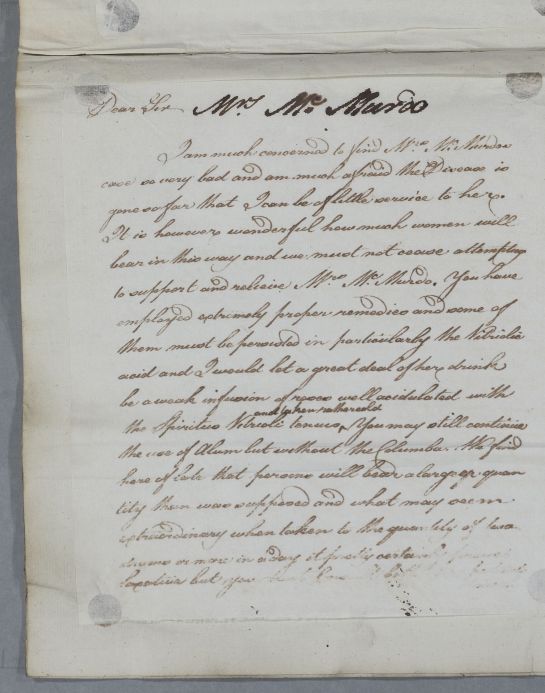 Dear Sir Mrs Mc Murdo
I am much concerned to find Mrs Mc Murdos
case so very bad and am much afraid the Disease is
gone so far that I can be of little service to her.
It is however wonderful how much women will
bear in this way and we must not cease attempting
to support and relieve Mrs Mc Murdo. You have
employed extremely proper remedies and some of
them must be persisted in particularly the Vitriolic
acid and I would let a great deal of her drink
be a weak infusion of roses well acidulated with
and given rather cold
the Spiritus Vitrioli tenuis, You may still continue
the use of Alum but without the Columba. We find
here of late that persons will bear a larger quan
tity than was supposed and what may seem
extraordinary when taken to the quantity of two
drams or more in a day it pretty certainly proves
laxative but you